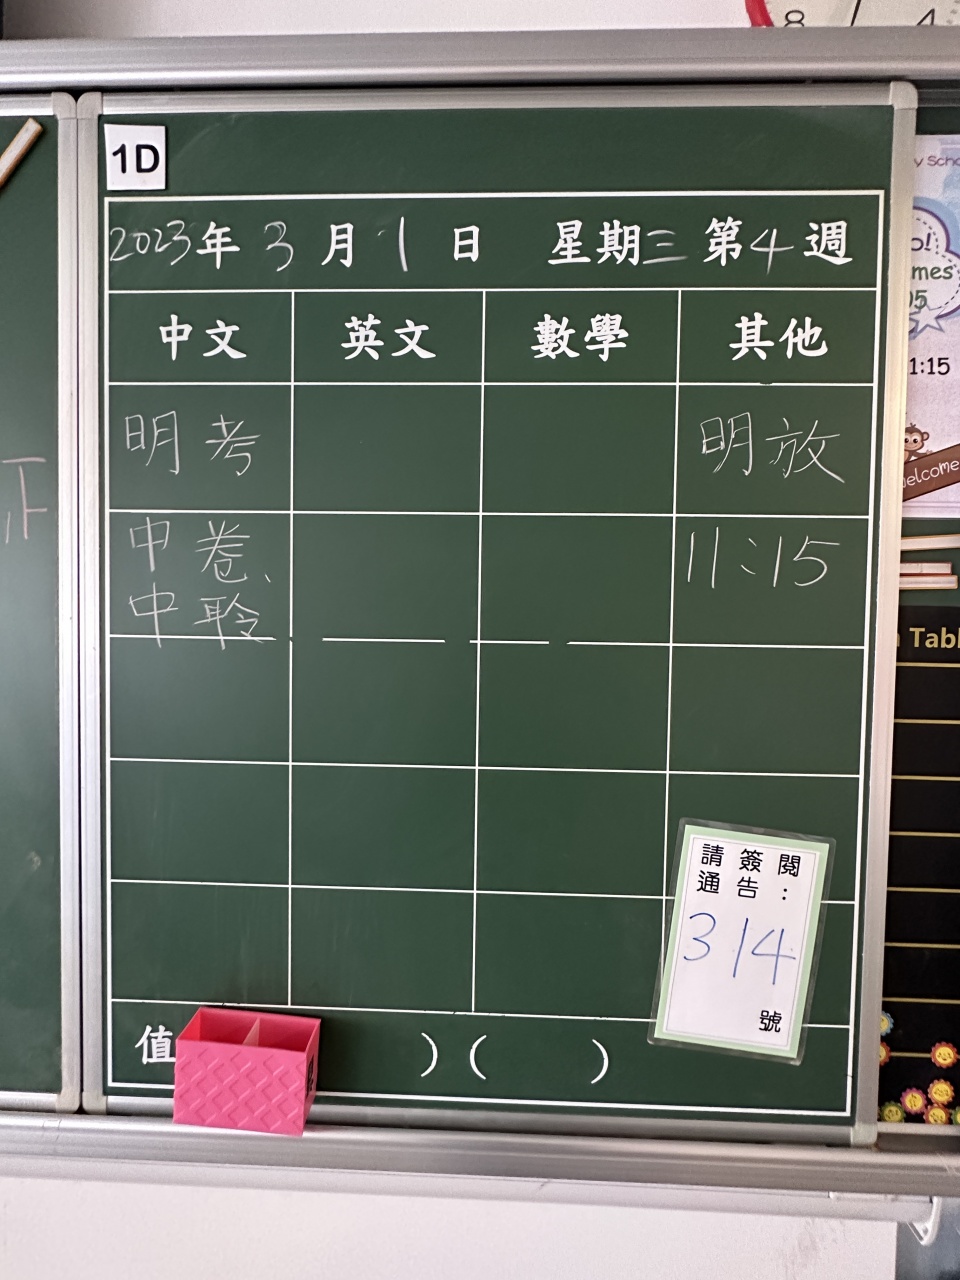 8 4
1D
2023年 3 月 1 日 星期三 第4週
中文 英文 數學 其他
明考 明放
中卷、 11:15
中聆
請簽閱
通告:
314
號
值 ) ( )
正
y Scho
o!
mes
05
1:15
elcome
Tabl